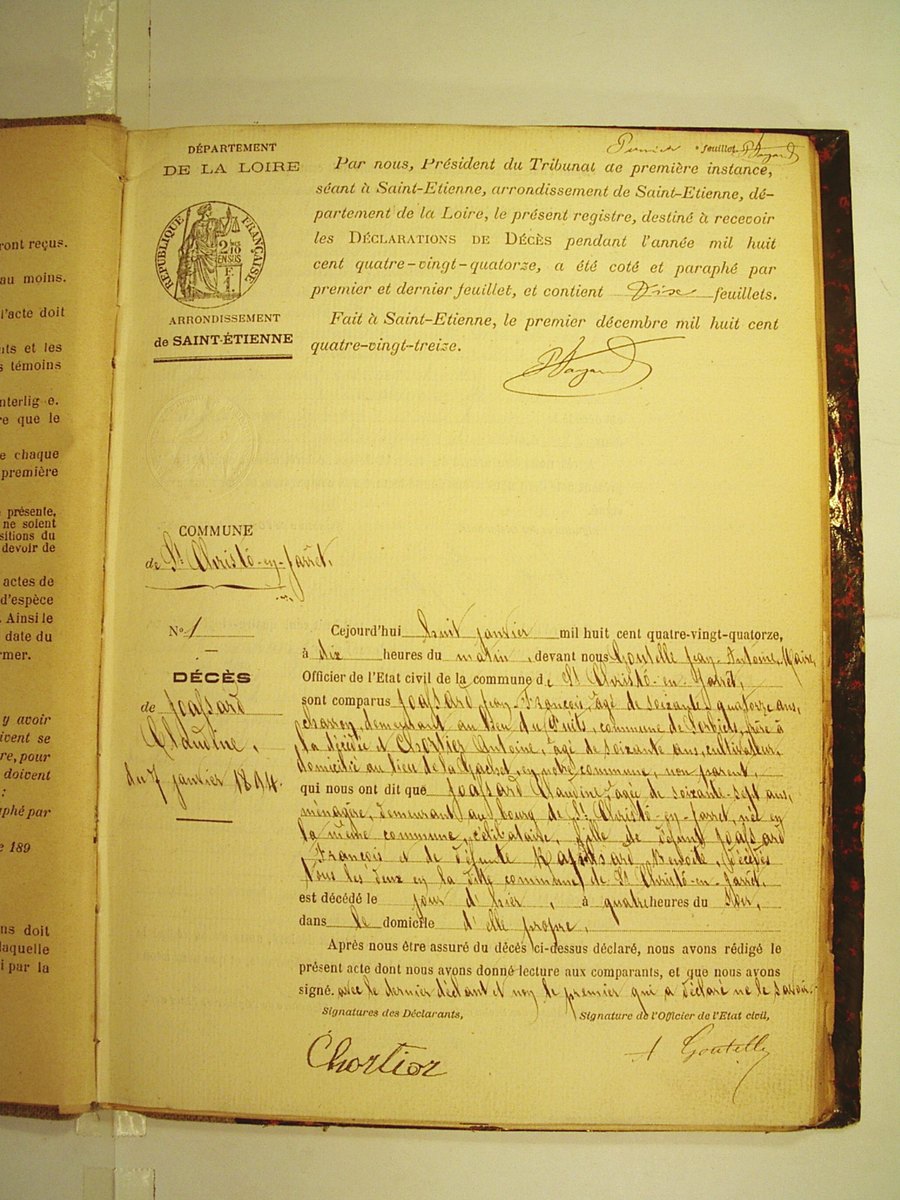 ront reçus.
au moins.
l'acte doit
nts et les
s témoins
nterlig e.
re que le
e chaque
première
présente,
ne soient
sitions du
devoir de
actes de
d'espèce
. Ainsi le
date du
rmer.
y avoir
ivent se
re, pour
doivent
:
phé par
e 189
ns doit
laquelle
i par la
DÉPARTEMENT
DE LA LOIRE
RÉPUBLIQUE FRANÇAISE
ARRONDISSEMENT
de SAINT-ÉTIENNE
Premier feuillet.
Par nous, Président du Tribunal de première instance,
séant à Saint-Etienne, arrondissement de Saint-Etienne, dé-
partement de la Loire, le présent registre, destiné à recevoir
les DÉCLARATIONS DE DÉCÈS pendant l'année mil huit
cent quatre-vingt-quatorze, a été coté et paraphé par
premier et dernier feuillet, et contient Dix feuillets.
Fait à Saint-Etienne, le premier décembre mil huit cent
quatre-vingt-treize.
COMMUNE
de St Christó-en-Jarret.
N° 1
DÉCÈS
de Joassard
Claudine,
du 7 janvier 1894.
Cejourd'hui huit janvier mil huit cent quatre-vingt-quatorze,
à dix heures du matin, devant nous Goutelle Jean-Antoine, Maire,
Officier de l'Etat civil de la commune de St Christó-en-Jarret,
sont comparus Joassard Jean-François, âgé de soixante-quatorze ans,
demeurant au lieu du Puits, commune de Sorbiers, frère à
la décédée et Chortier Antoine, âgé de soixante ans, cultivateur,
domicilié au lieu de la en notre commune, non parent,
qui nous ont dit que Joassard Claudine, âgée de soixante-sept ans,
ménagère, demeurant au bourg de St Christó-en-Jarret, née en
la même commune, célibataire, fille de défunt Joassard
François et de défunte Benoite, décédés
tous les deux en la dite commune de St Christó-en-Jarret,
est décédé le jour d'hier, à quatre heures du soir,
dans le domicile d'elle propre.
Après nous être assuré du décès ci-dessus déclaré, nous avons rédigé le
présent acte dont nous avons donné lecture aux comparants, et que nous avons
signé. avec le dernier déclarant et non le premier qui a déclaré ne le savoir.
Signatures des Déclarants, Signature de l'Officier de l'Etat civil,
Chortior A Goutelle